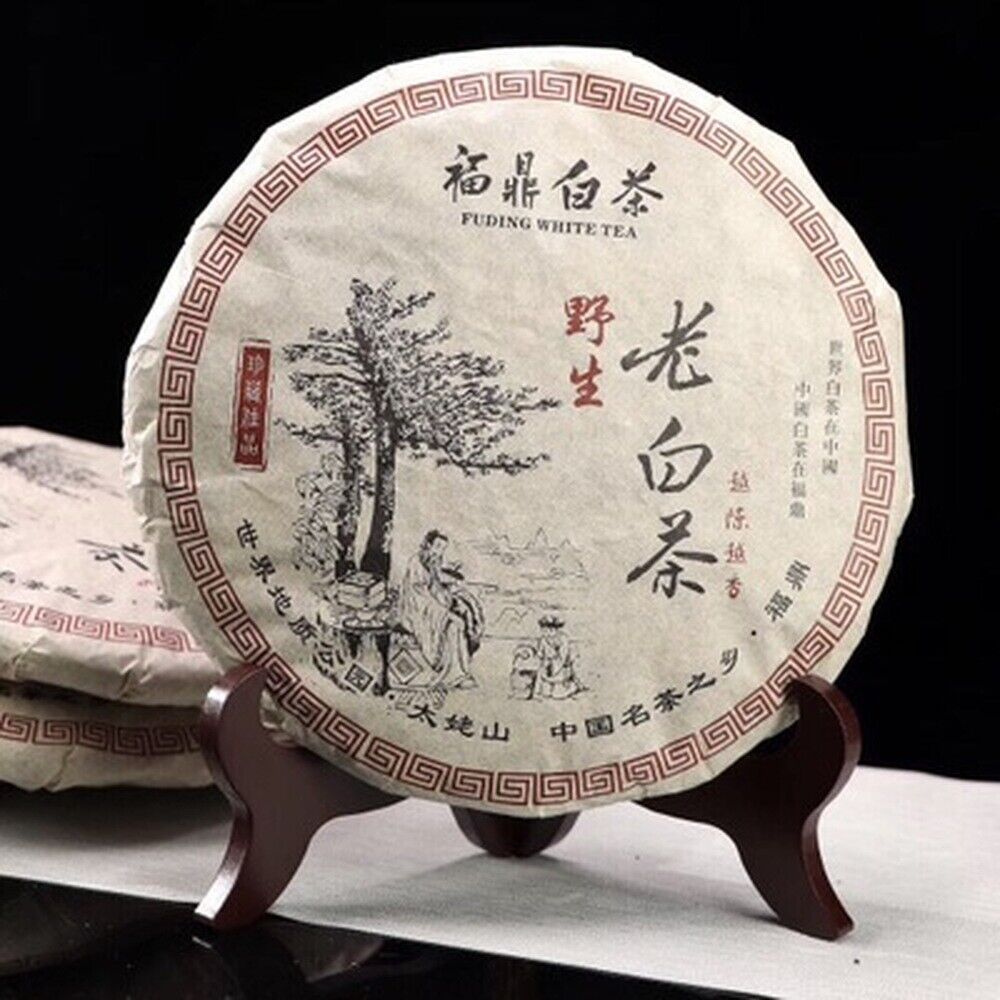 福鼎白茶
FUDING WHITE TEA
野生
老白茶
世界白茶在中國
中國白茶在福鼎
越陈越香
珍藏佳品
世界地质公园·太姥山 中国名茶之乡 福鼎
茶
名茶之乡·